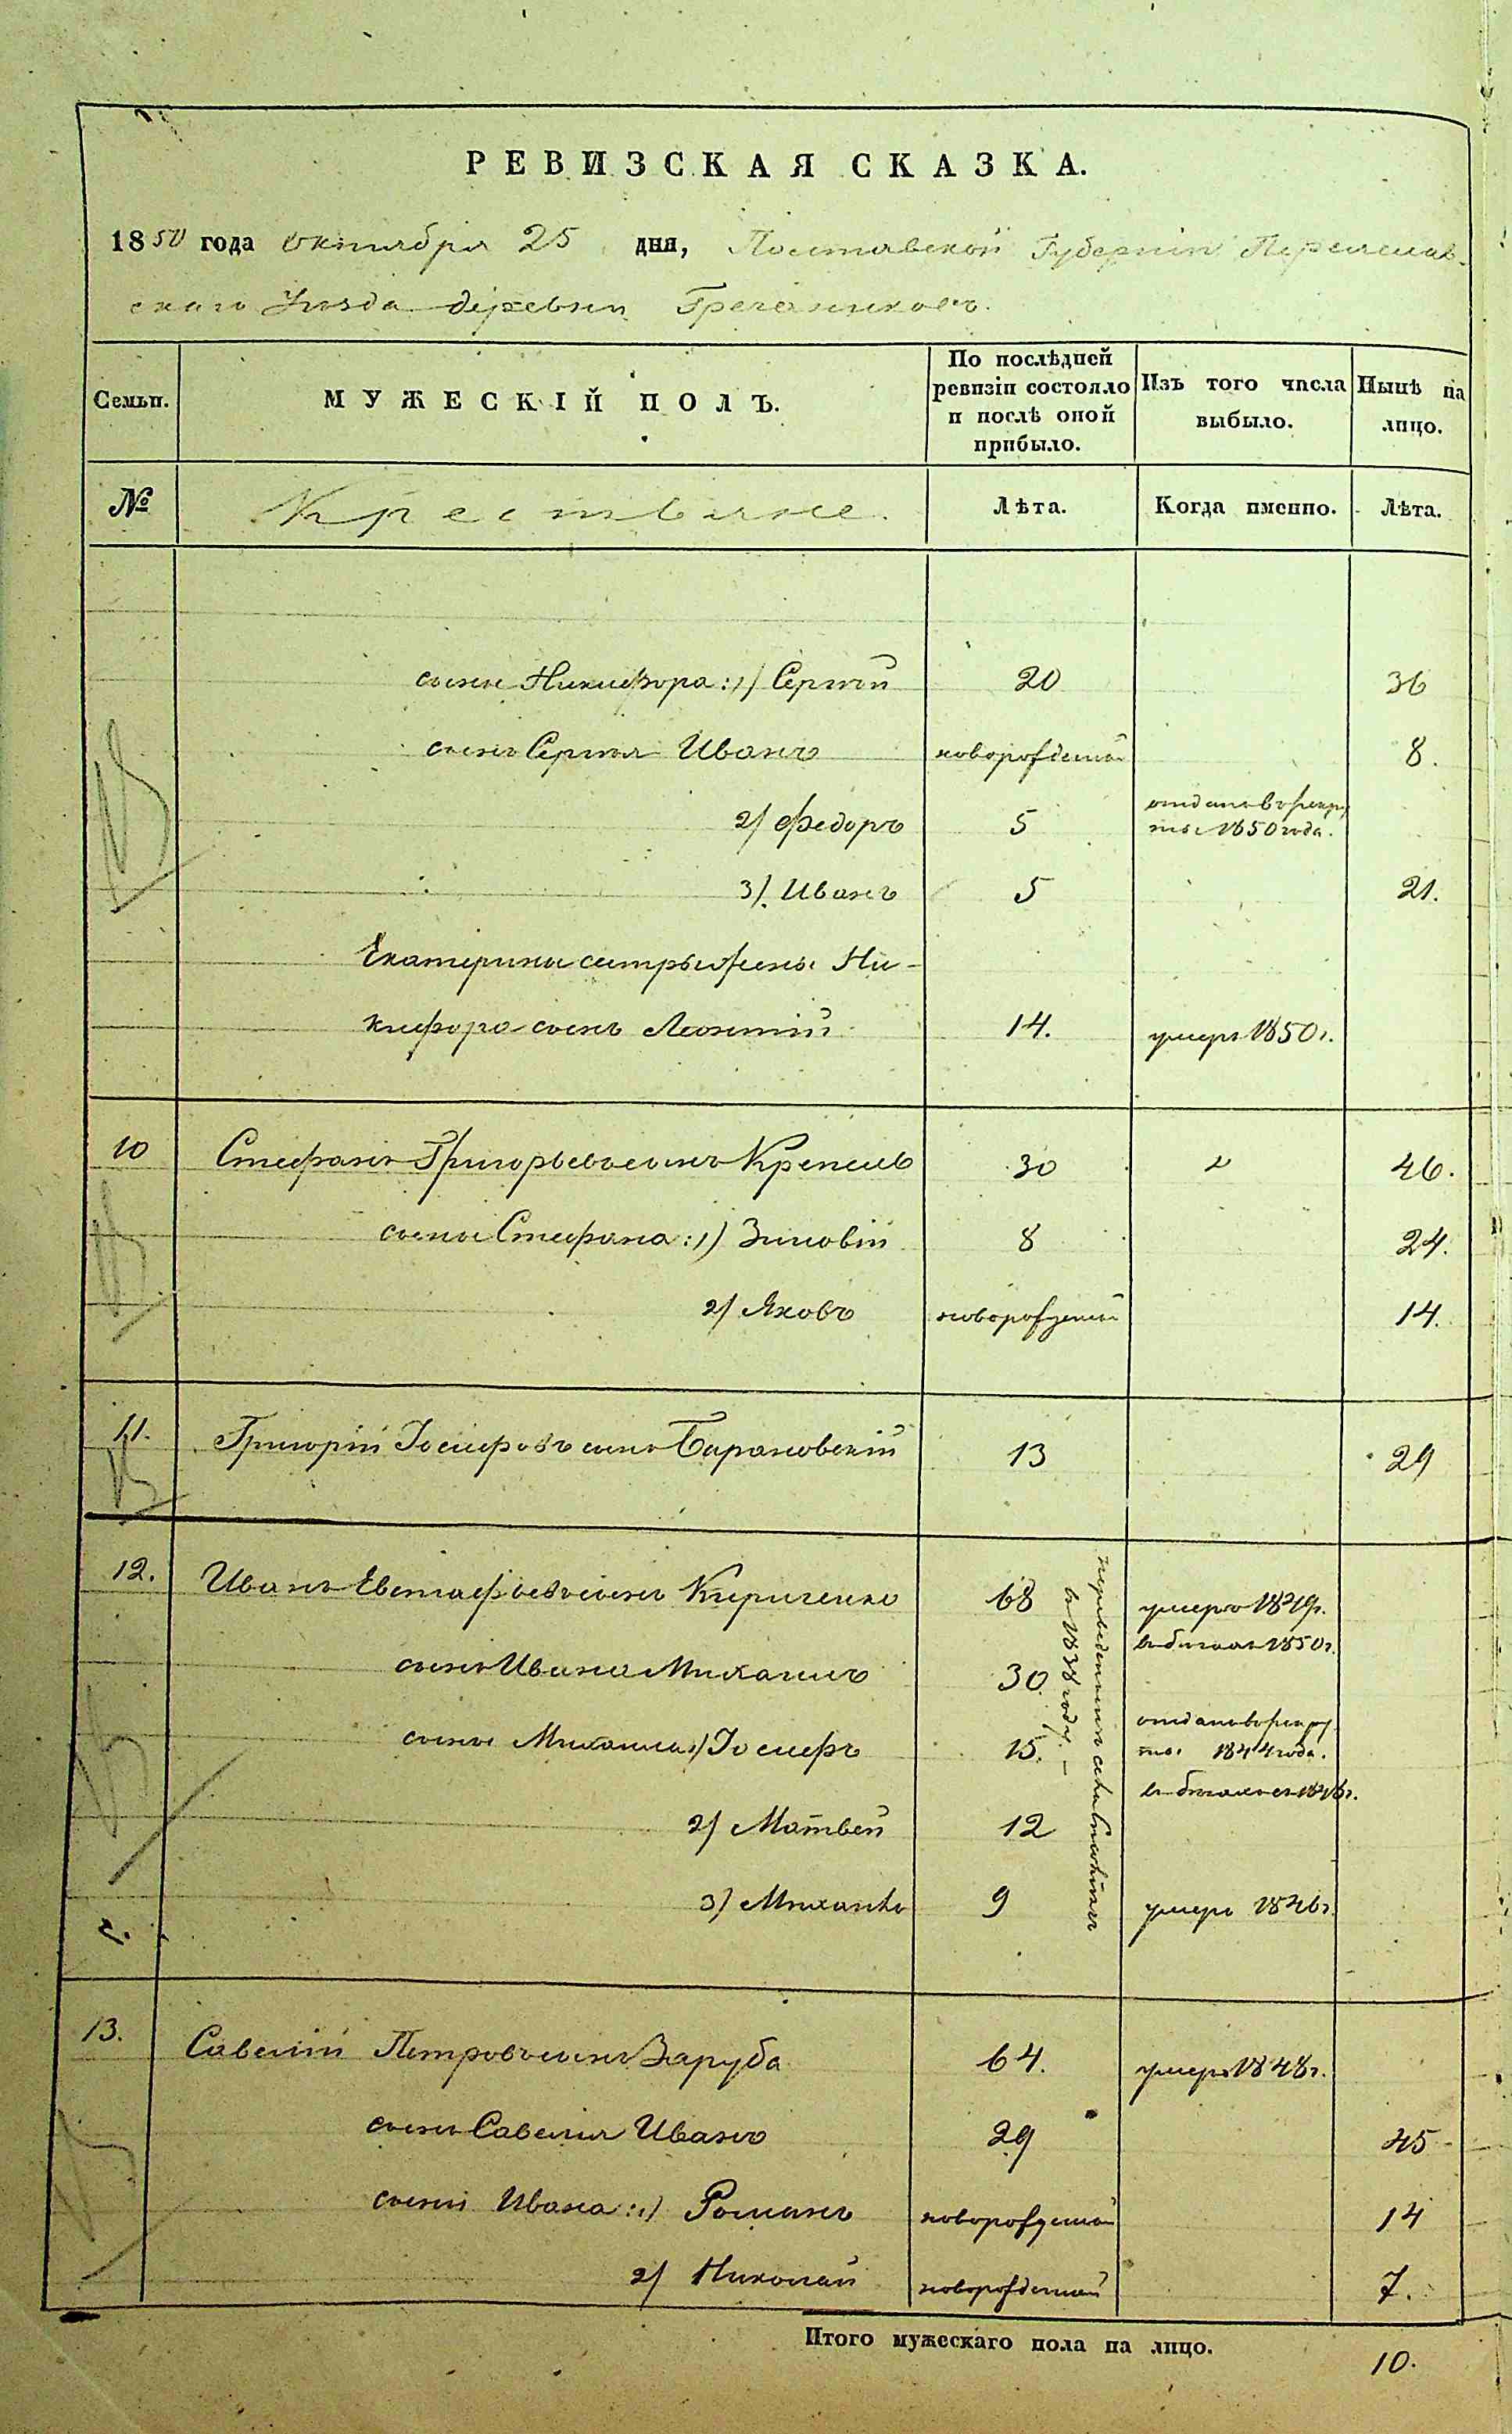 РЕВИЗСКАЯ СКАЗКА.
1850 года октября 25 дня, Полтавской Губерніи Переяслав-
скаго Уѣзда деревни Гречаниковъ.
Семьи. МУЖЕСКІЙ ПОЛЪ. По послѣдней ревизіи состояло и послѣ оной прибыло. Изъ того числа выбыло. Нынѣ на лицо.
№ Крестьяне. Лѣта. Когда именно. Лѣта.
сыны Никифора: 1) Сергѣй 20 36
сынъ Сергѣя Иванъ новорожденный 8.
2) Федоръ 5 отданъ въ рекру
ты 1850 года.
3). Иванъ 5 21.
Екатерины сестры жены Ни-
кифора сынъ Леонтій 14. умеръ 1850 г.
10 Стефанъ Григорьевъ сынъ Крепель 30 46.
сыны Стефана: 1) Зиновій 8 24.
2) Яковъ новорожденный 14.
11. Григорій Іосифовъ сынъ Барановскій 13 29
12. Иванъ Евстафьевъ сынъ Кириченко 68 умеръ г.
сынъ Ивана Михаилъ 30. въ бѣгахъ 1850 г.
сыны Михаила 1) Іосифъ 15. отданъ въ рекру
ты 1844 года.
2) Матвей 12 въ бѣгахъ съ
3) Михаилъ 9 умеръ 1846 г.
въ 1838 году. –
13. Савелій Петровъ сынъ Заруба 64. умеръ 1848 г.
сынъ Савелія Иванъ 29 45
сыны Ивана: 1) Романъ новорожденный 14
2) Николай новорожденный 7.
Итого мужескаго пола на лицо. 10.